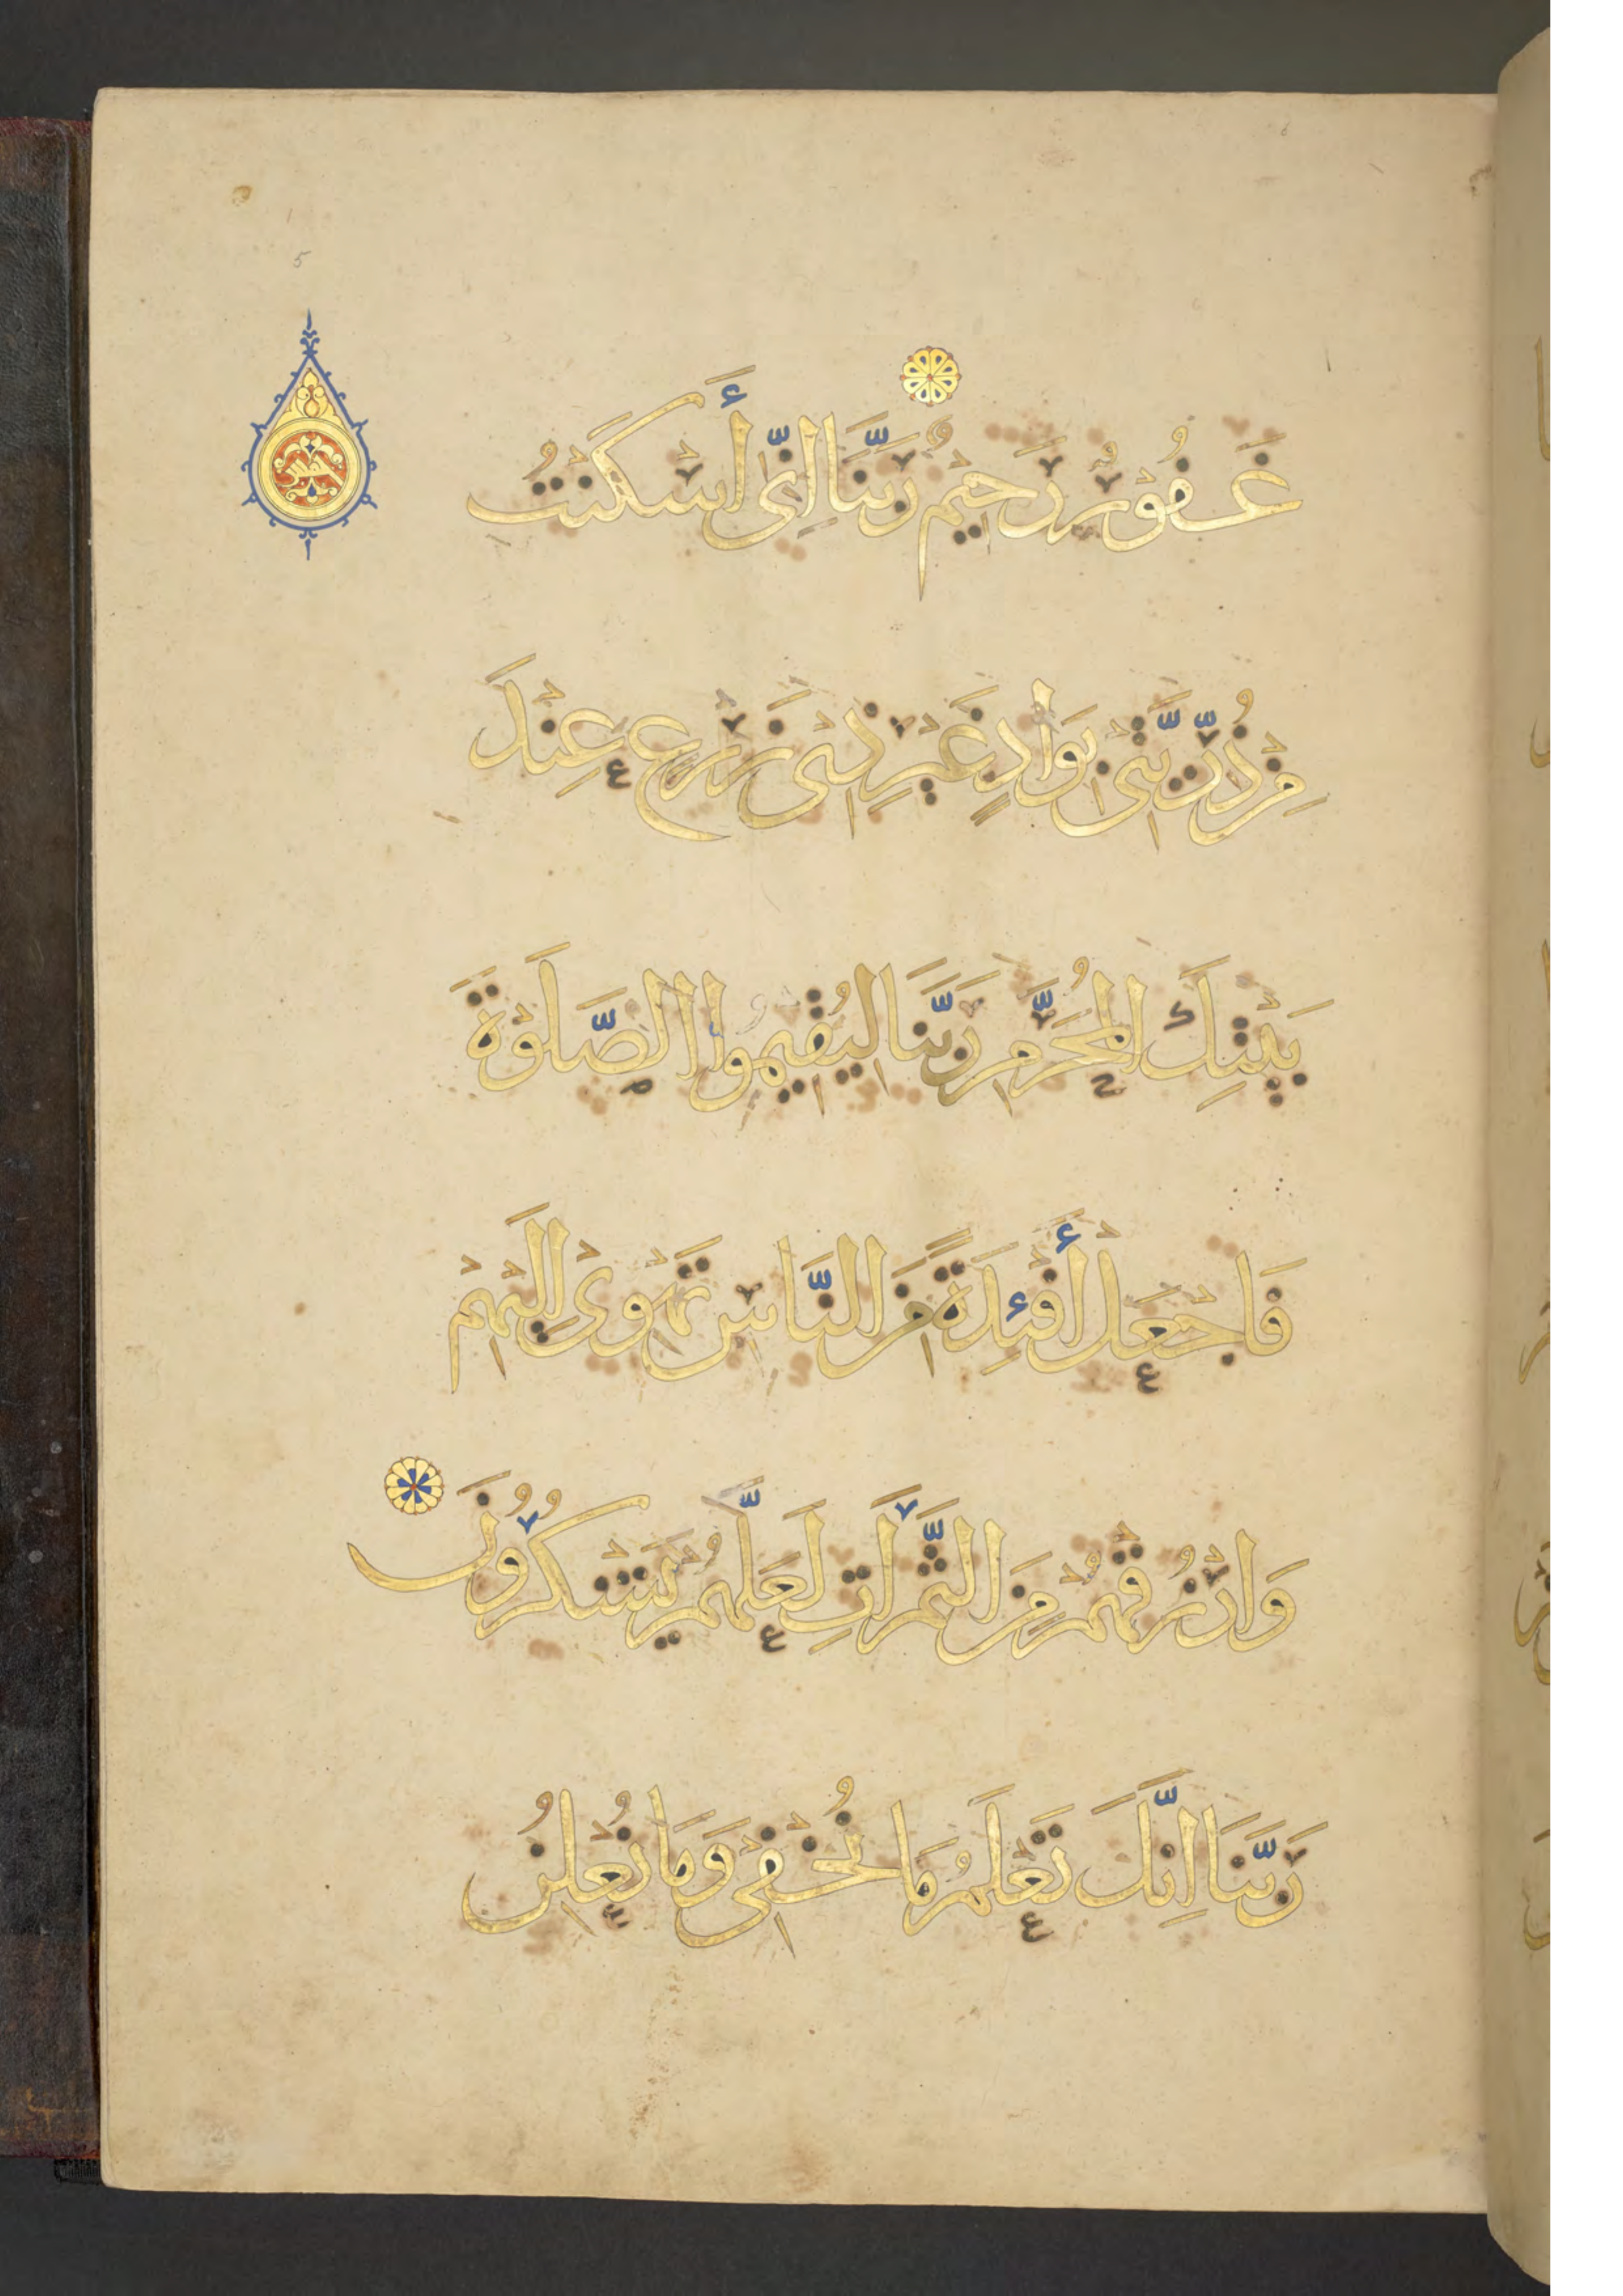 غَفُوْرٌ رَحِيْمٌ رَبَّنَا اِنِّى أَسْكَنْتُ
مِنْ ذُرِّيَّتِىْ بِوَادٍ غَيْرِ ذِىْ زَرْعٍ عِنْدَ
بَيْتِكَ الْمُحَرَّمِ رَبَّنَا لِيُقِيْمُوا الصَّلَوٰةَ
فَاجْعَلْ أَفْئِدَةً مِنَ النَّاسِ تَهْوِىْ اِلَيْهِمْ
وَارْزُقْهُمْ مِنَ الثَّمَرَاتِ لَعَلَّهُمْ يَشْكُرُوْنَ
رَبَّنَا اِنَّكَ تَعْلَمُ مَا نُخْفِىْ وَمَا نُعْلِنُ